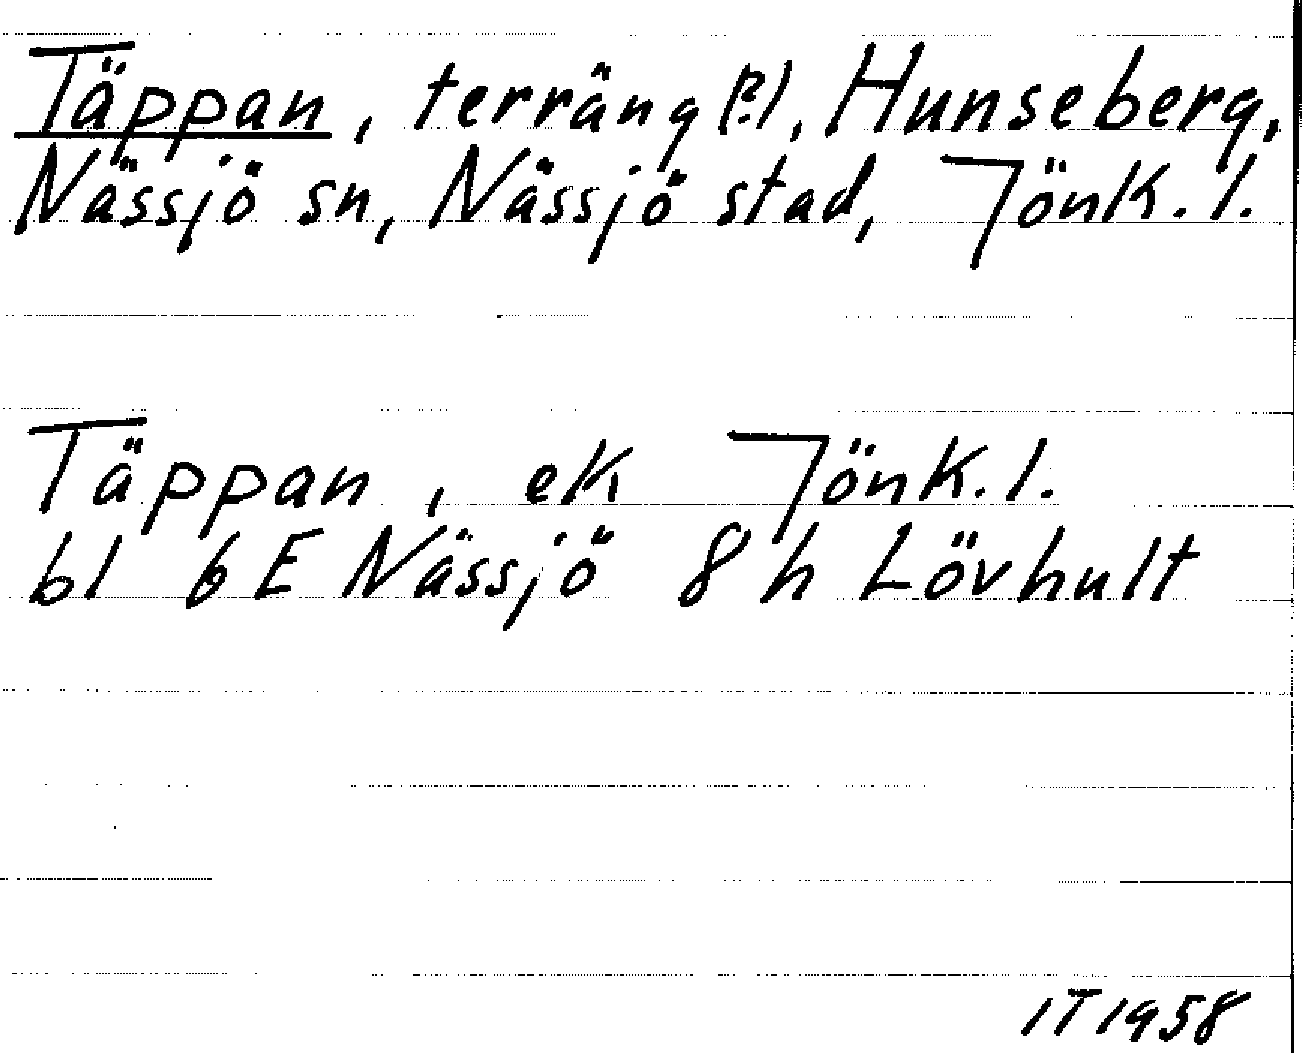 Täppan, terräng (?), Hunseberg,
Nässjö sn, Nässjö stad, Jönk. l.
Täppan, ek Jönk. l.
bl 6E Nässjö 8h Lövhult
IT 1958